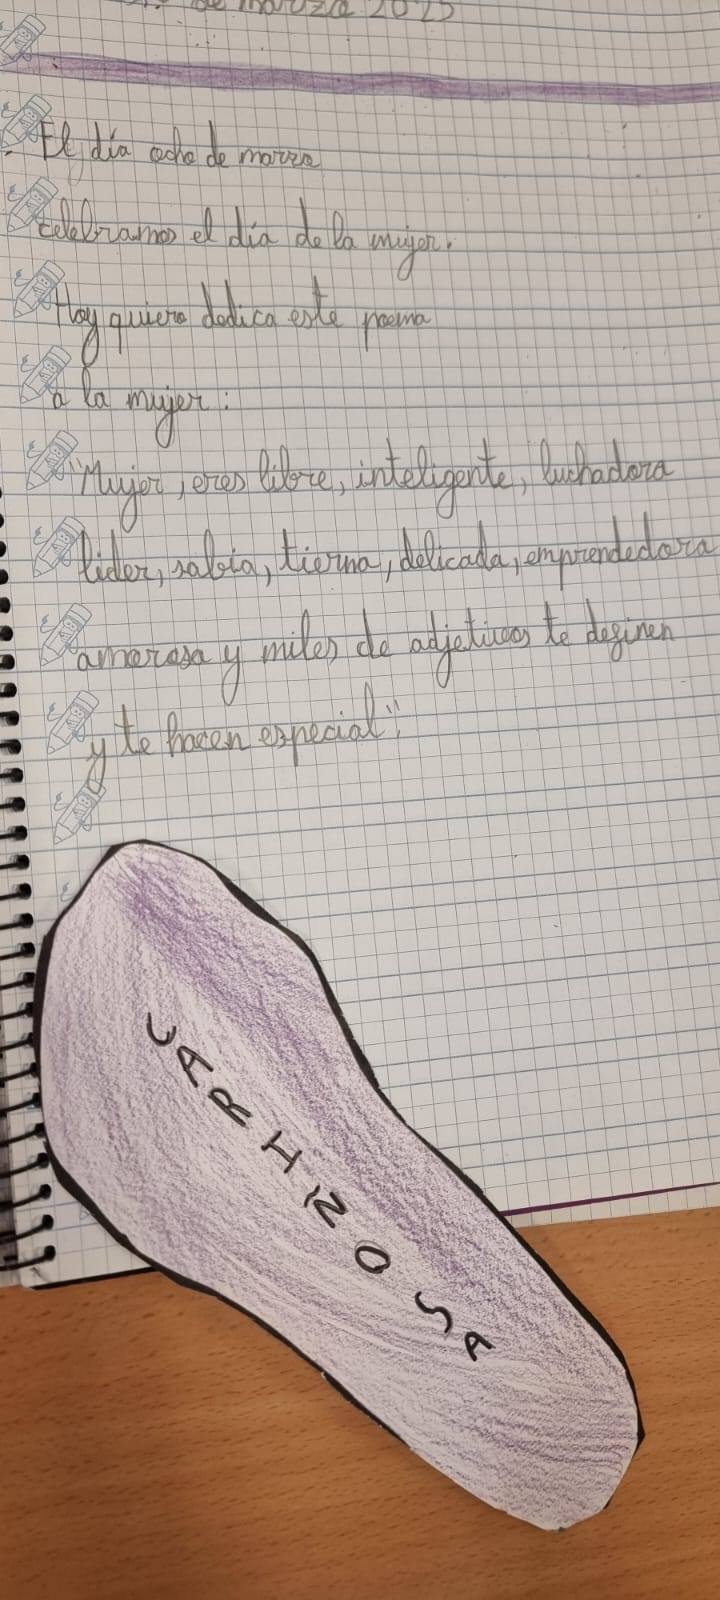 de marzo 2025
El día ocho de marzo
celebramos el día de la mujer.
Hoy quiero dedica este poema
a la mujer:
"Mujer, eres libre, inteligente, luchadora
lider, sabia, tierna, delicada, emprendedora
amorosa y miles de adjetivos te definen
y te hacen especial".
CARIÑOSA